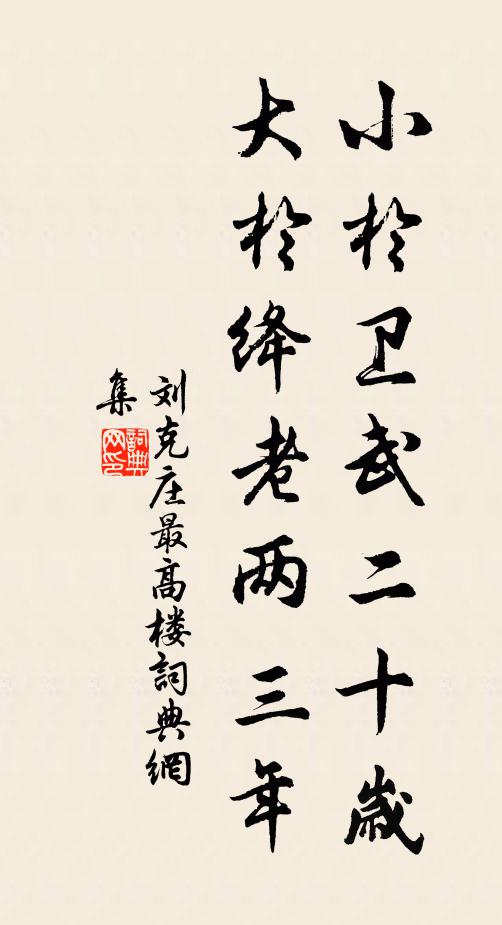 小於卫武二十歲
大於绛老两三年
刘克庄最高楼詞典網
集
詞典网印